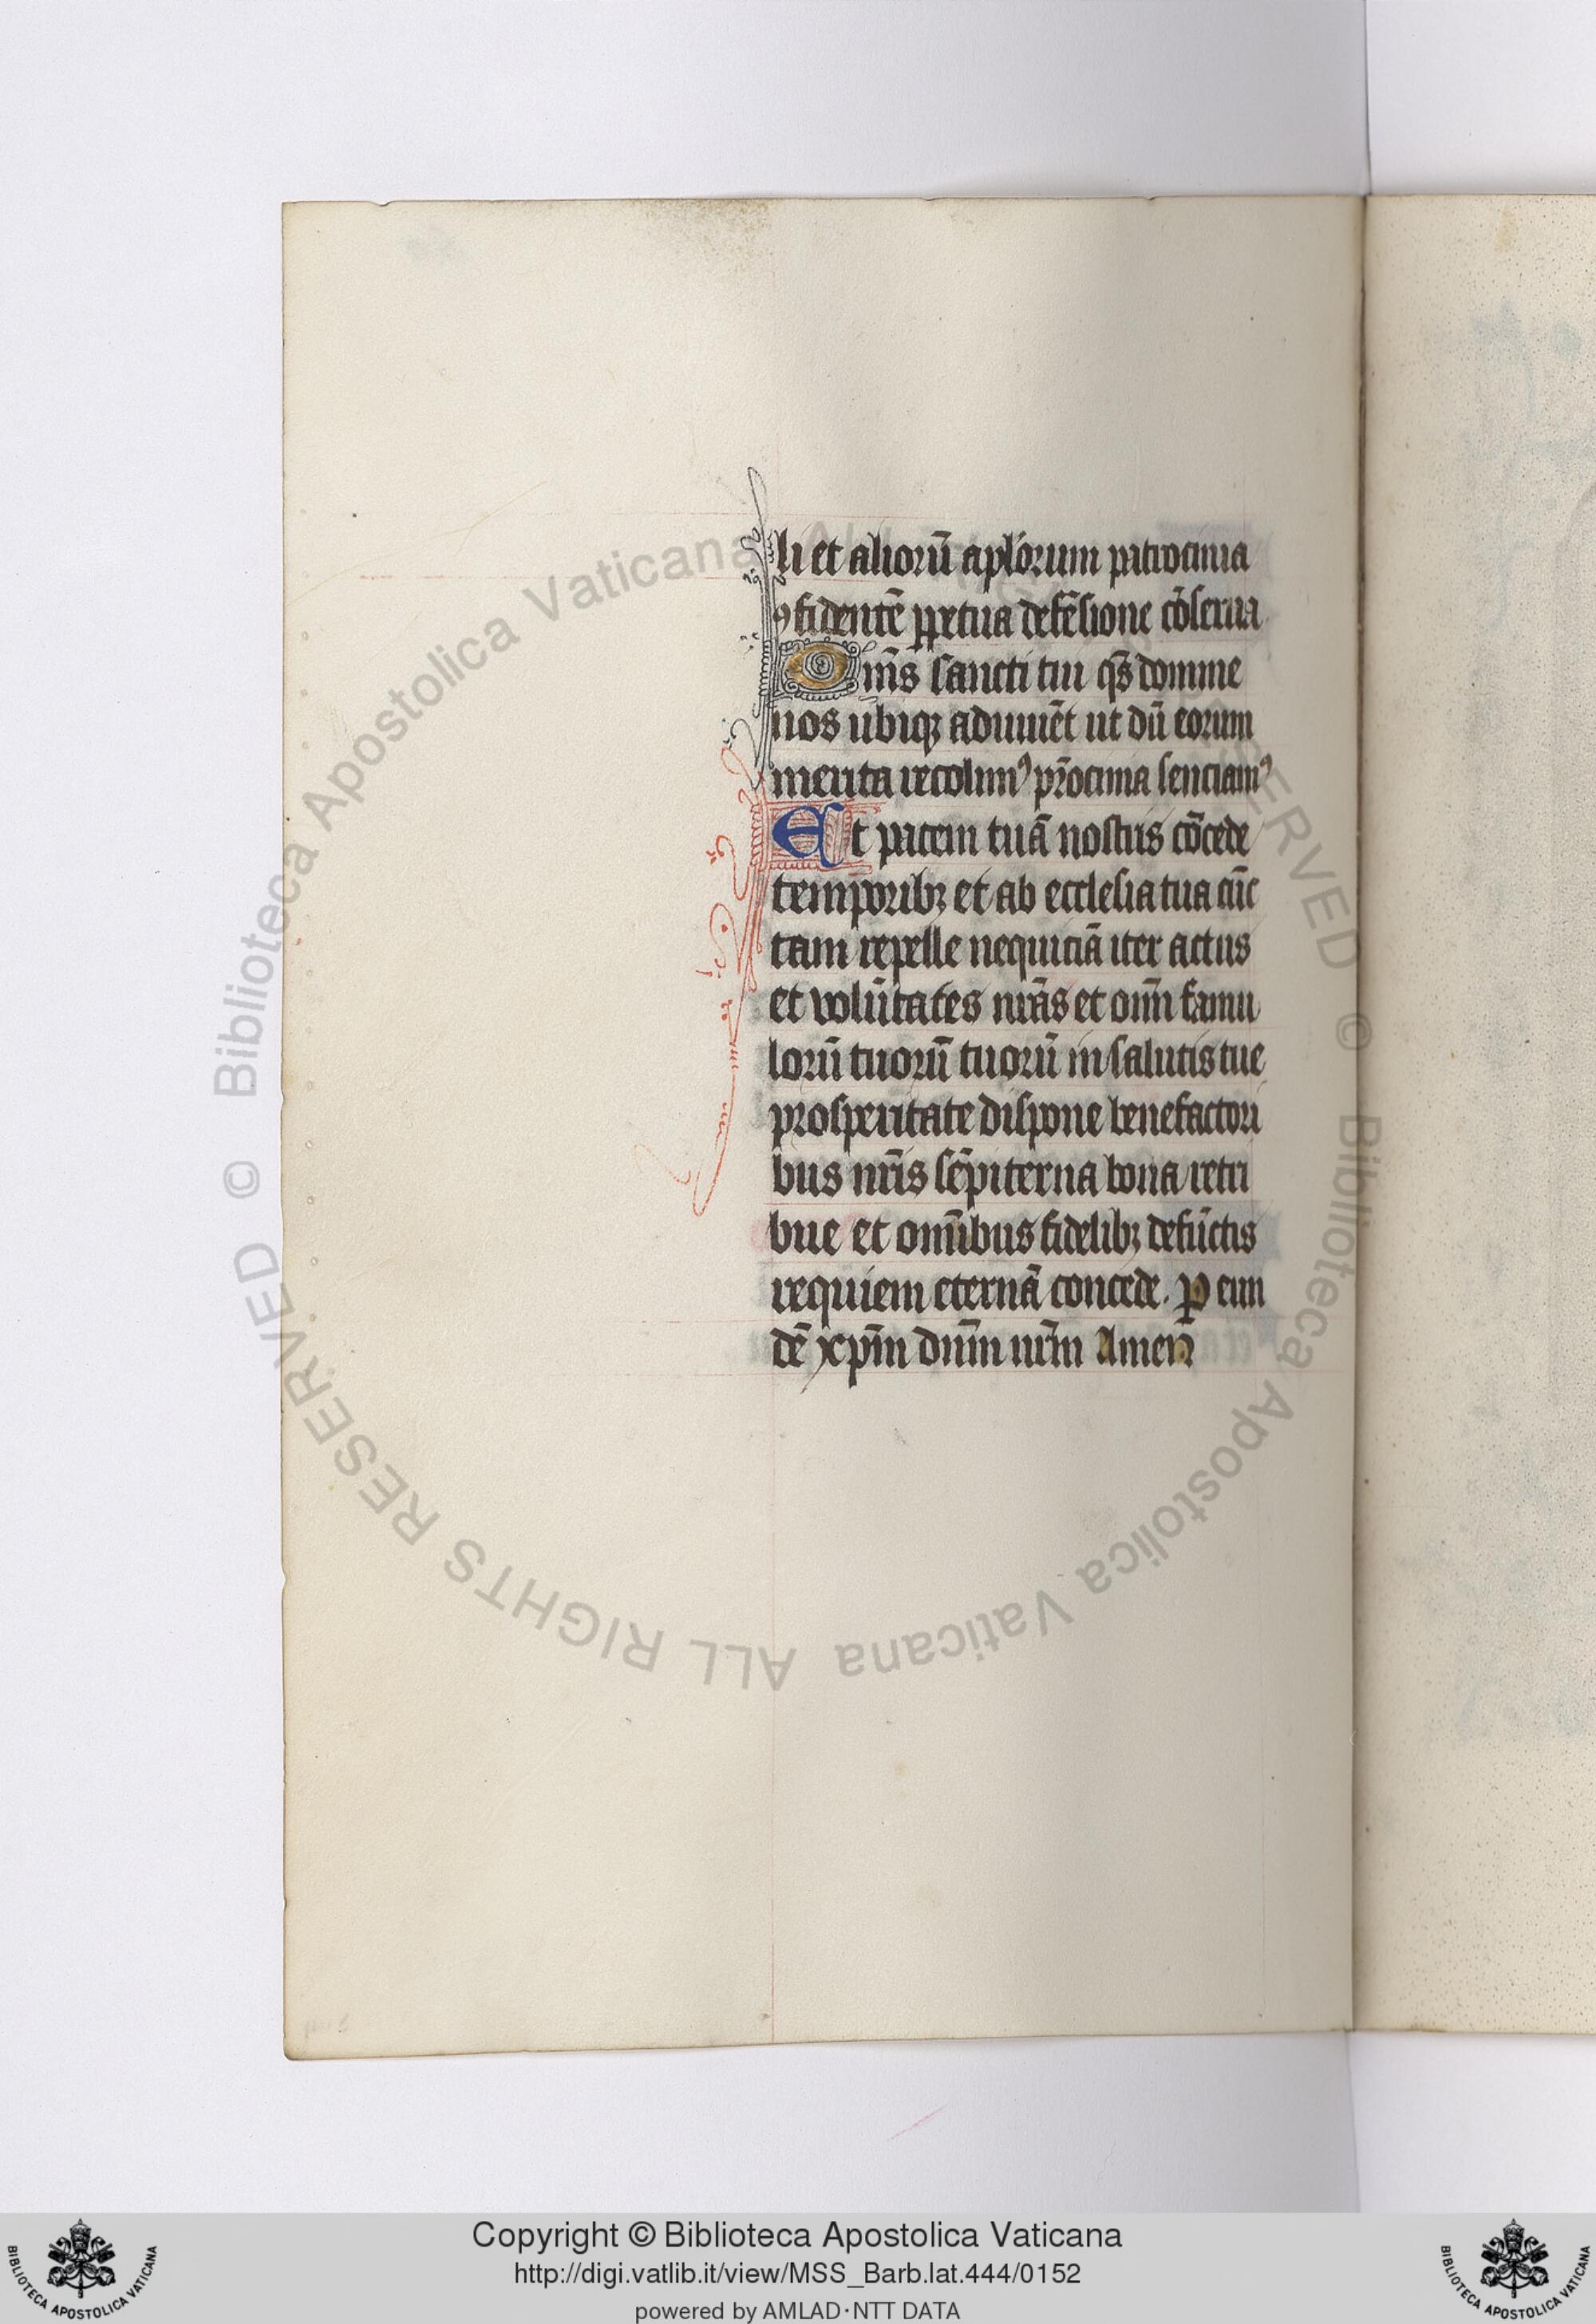 li et aliorū aplorum patrocinia
ꝯfidentē ꝑpetua defēsione cōserua
Om̄s sancti tui qs̄ domine
nos ubiqꝫ adiuuēt ut dū eorum
merita recolimꝰ pr̄ocinia senciamꝰ
Et pacem tuā nostris cōcede
temporibꝫ et ab ecclesia tua cūc
tam repelle nequiciā iter actus
et volūtates nrās et om̄ famu
lorū tuorū tuorū in salutis tue
prosperitate dispone benefactori
bus nr̄is sēpiterna bona retri
bue et om̄ibus fidelibꝫ defūctis
requiem eternā concede. ꝑ eun
dē xp̄m dn̄m nr̄m Amen
© Biblioteca Apostolica Vaticana ALL RIGHTS RESERVED © Biblioteca Apostolica Vaticana ALL RIGHTS RESERVED
Copyright © Biblioteca Apostolica Vaticana
http://digi.vatlib.it/view/MSS_Barb.lat.444/0152
powered by AMLAD·NTT DATA
BIBLIOTECA APOSTOLICA VATICANA
BIBLIOTECA APOSTOLICA VATICANA